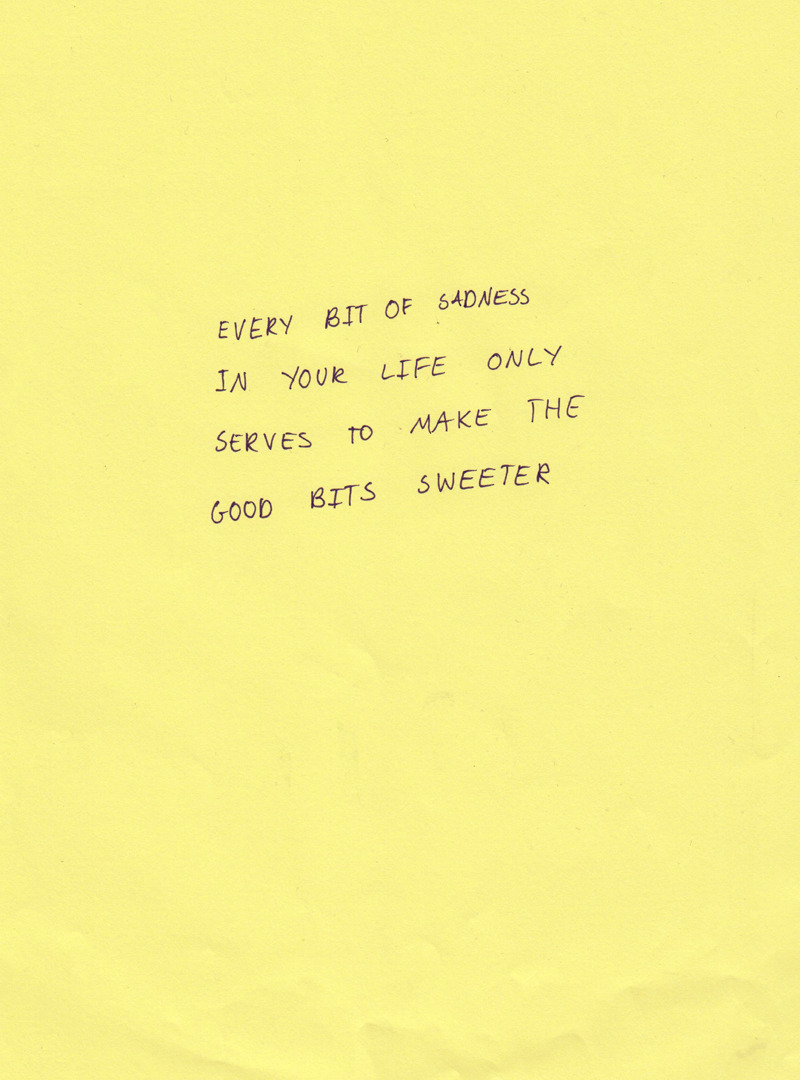 EVERY BIT OF SADNESS
IN YOUR LIFE ONLY
SERVES TO MAKE THE
GOOD BITS SWEETER